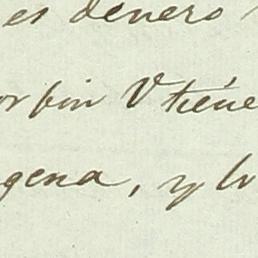 es denero
or fin V tiene
gena, y lo